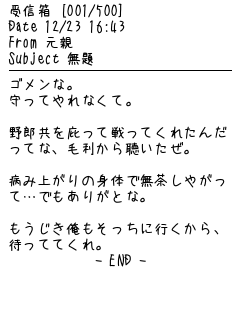 受信箱 [001/500]
Date 12/23 16:43
From 元親
Subject 無題
ゴメンな。
守ってやれなくて。
野郎共を庇って戦ってくれたんだ
ってな、毛利から聴いたぜ。
病み上がりの身体で無茶しやがっ
て…でもありがとな。
もうじき俺もそっちに行くから、
待っててくれ。
- END -